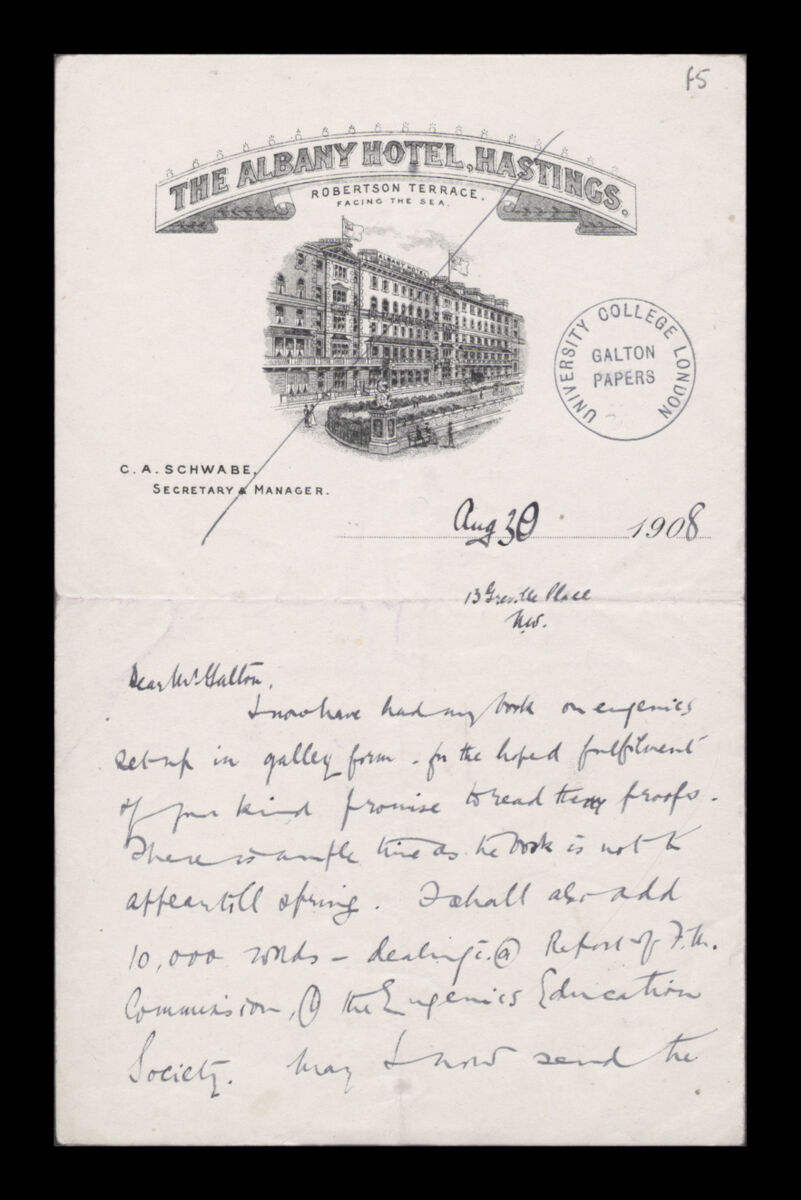 f5
THE ALBANY HOTEL, HASTINGS.
ROBERTSON TERRACE.
FACING THE SEA.
ALBANY HOTEL
UNIVERSITY COLLEGE LONDON
GALTON
PAPERS
C. A. SCHWABE.
SECRETARY & MANAGER.
Aug 30 1908
13 Greville Place
N.W.
Dear Mr. Galton,
I now have had my book on eugenics
set up in galley form - for the hoped fulfilment
of your kind promise to read the proofs.
There is ample time as the book is not to
appear till spring. I shall also add
10,000 words - dealing c. (a) Report of F.M.
Commission, (b) the Eugenics Education
Society. May I now send the